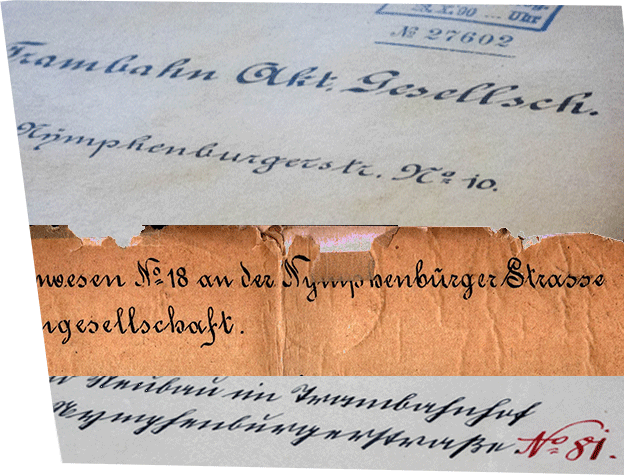 28.X.00 ... Uhr
№ 27602
Trambahn Akt. Gesellsch.
Nymphenburgerstr. № 10.
nwesen № 18 an der Nymphenburger Strasse
ngesellschaft.
Neubau im Trambahnhof
Nymphenburgerstraße № 81.